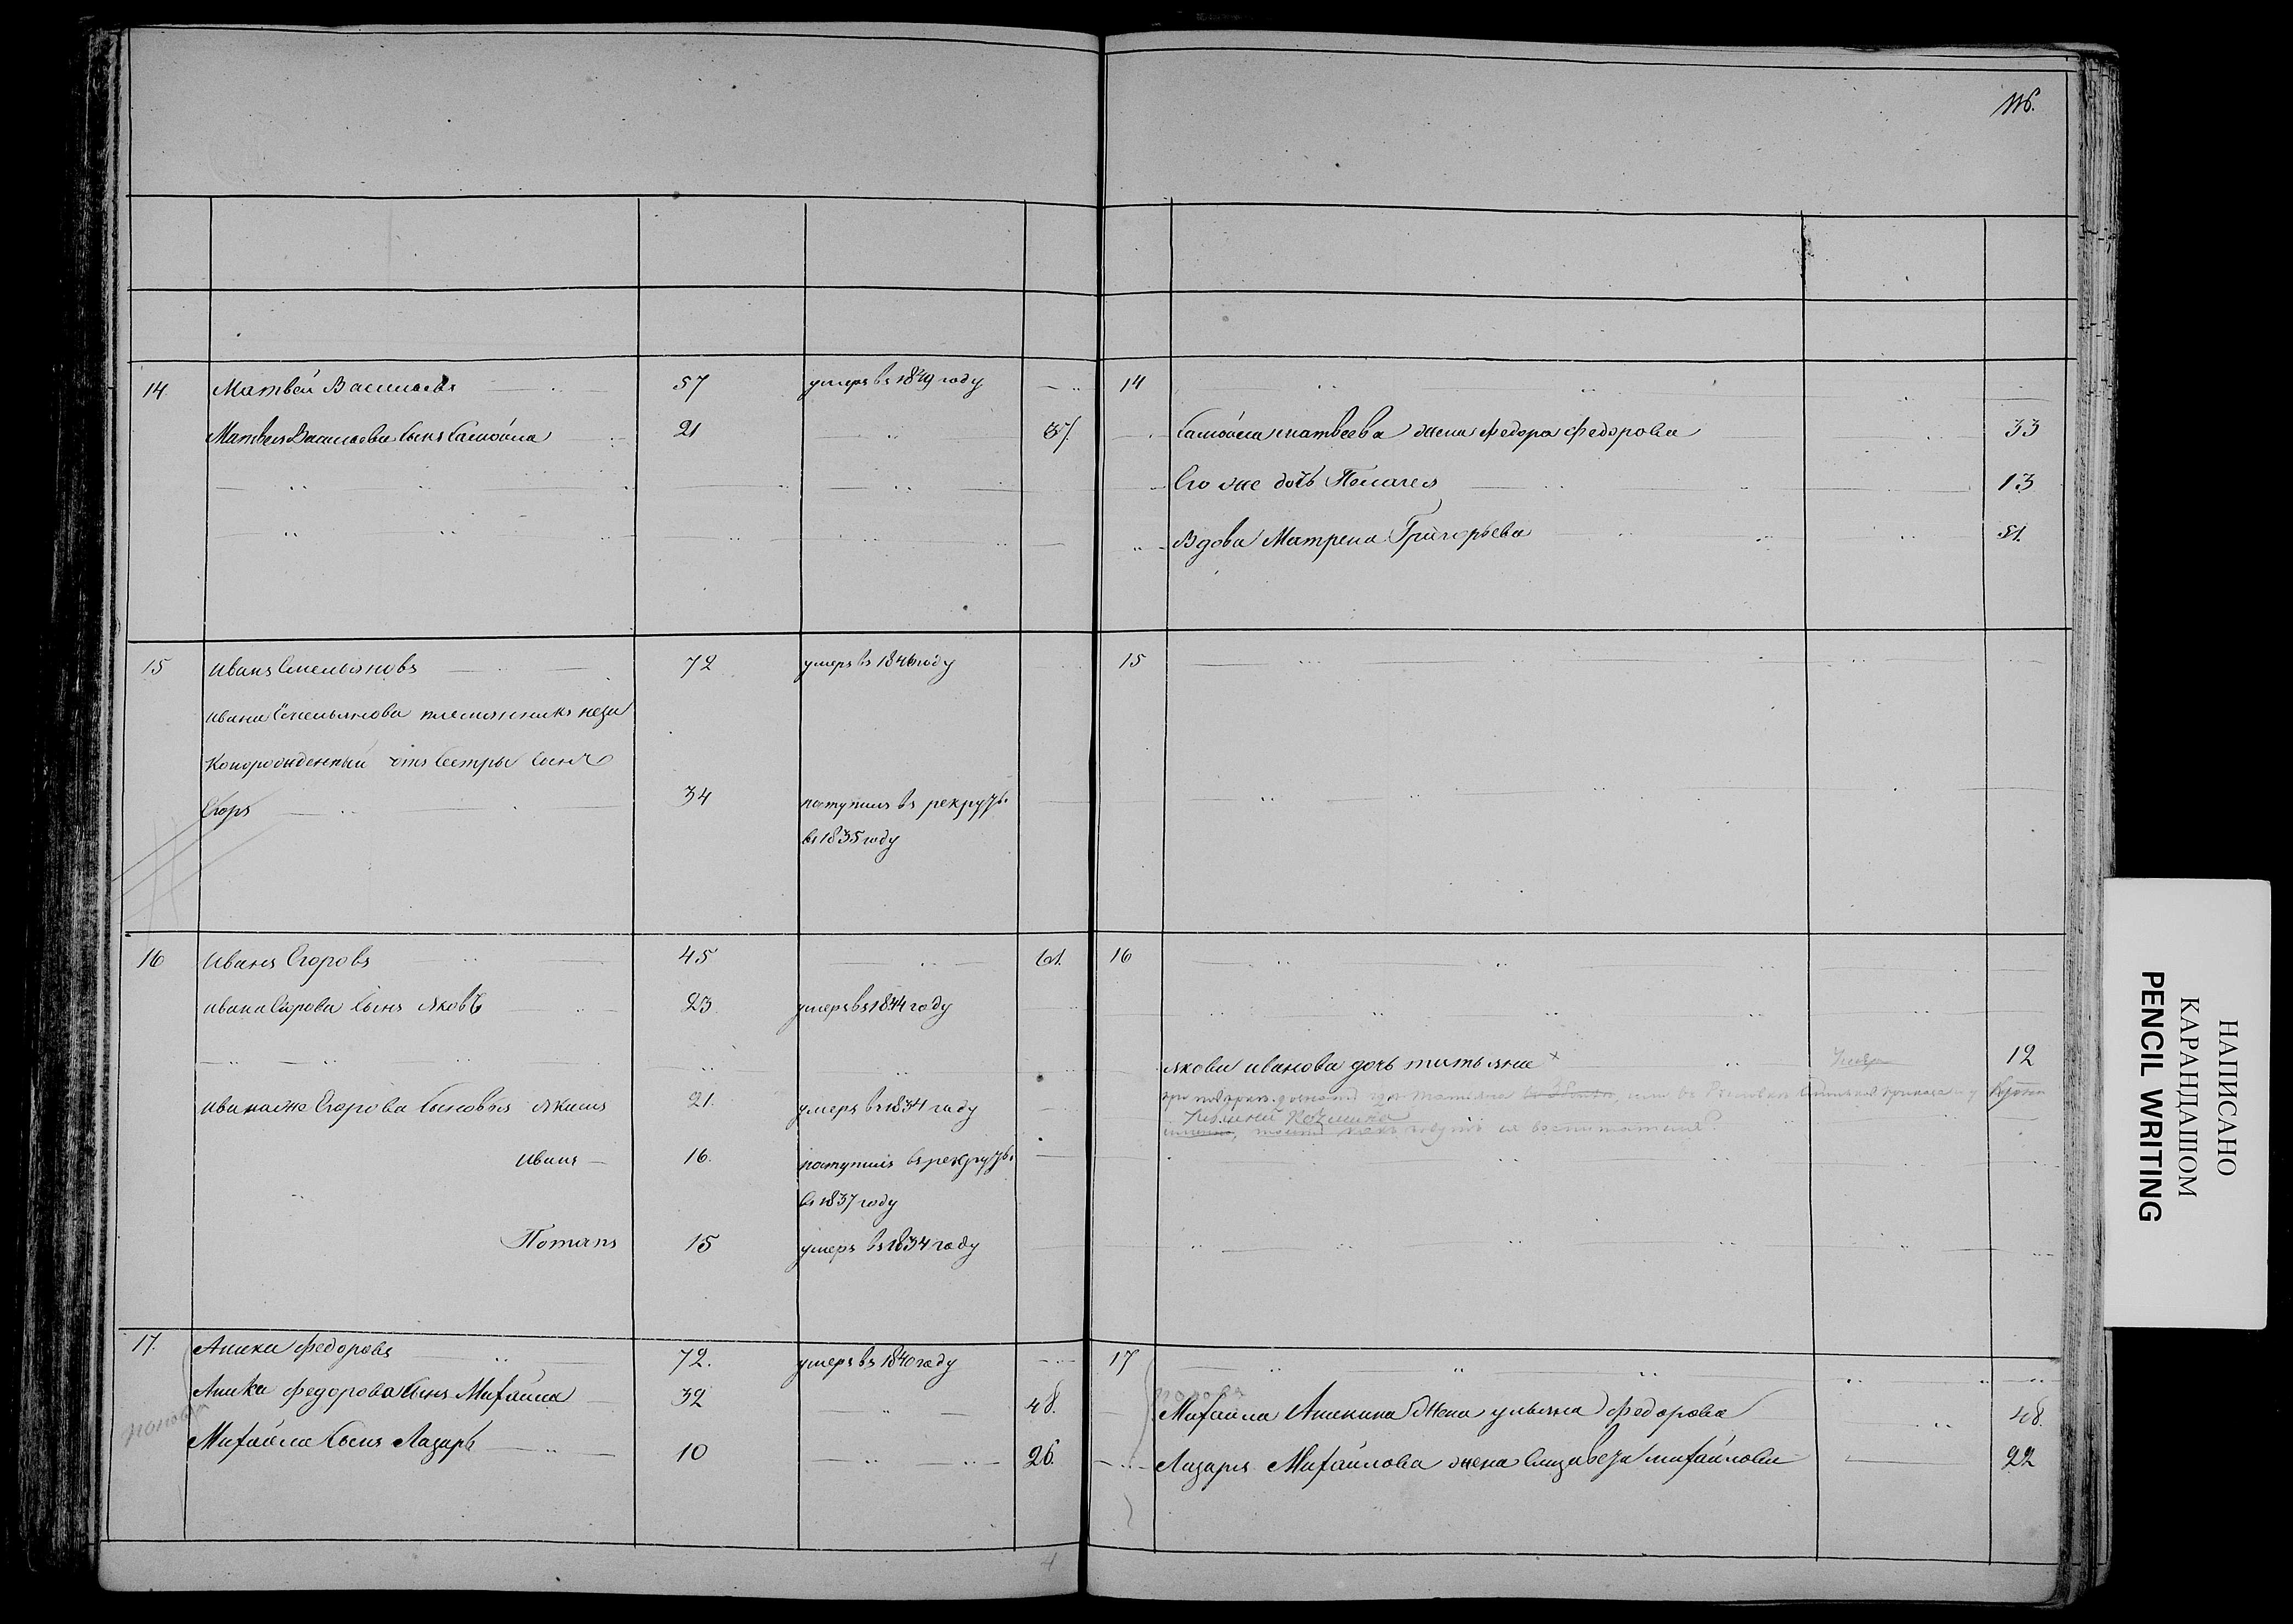 116.
14. Матвей Васильевъ 57 умеръ въ 1849 году
Матвея Васильева сынъ Самойла 21 37.
15 Иванъ Емельяновъ 72 умеръ въ 1846 году
Ивана Емельянова племянникъ неза
конорожденный отъ сестры сынъ
Егоръ 34 поступилъ въ рекруты
въ 1835 году
16 Иванъ Егоровъ 45 61.
Ивана Егорова сынъ Яковъ 23. умеръ въ 1844 году
Ивана же Егорова сыновья Якимъ 21. умеръ въ 1834 году
Иванъ 16. поступилъ въ рекруты
въ 1837 году
Потапъ 15 умеръ въ 1834 году
17. Аника Федоровъ 72. умеръ въ 1840 году
Аники Федорова сынъ Михайла 32 48.
Михайлы сынъ Лазарь 10 26.
14
Самойлы Матвеева жена Федора Федорова 33
Его же дочь Пелагея 13
Вдова Матрена Григорьева 51.
15
16
Якова Иванова дочь Татьяна 12
17
Михайла Аникина жена Ульяна Федорова 48.
Лазаря Михайлова жена Елизавета Михайлова 22
НАПИСАНО
КАРАНДАШОМ
PENCIL WRITING